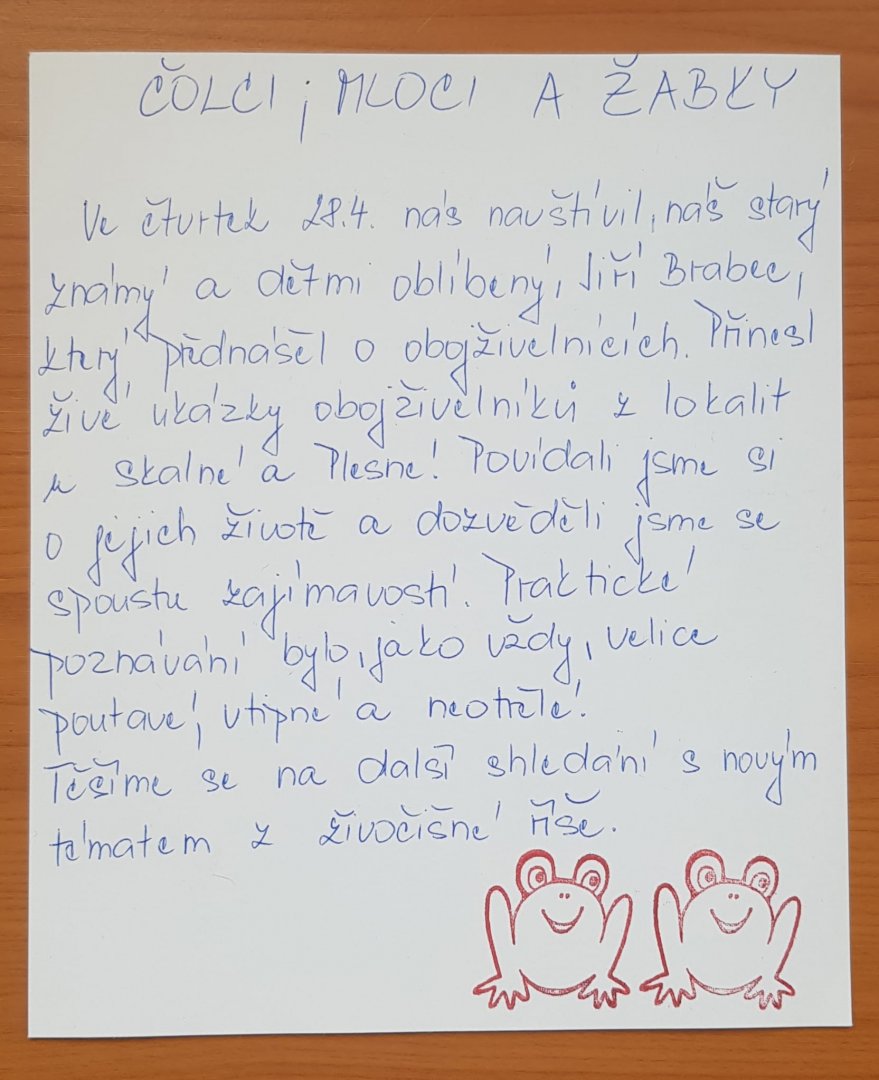 ČOLCI, MLOCI A ŽABKY
Ve čtvrtek 28.4. nás navštívil, náš starý
známý a dětmi oblíbený, Jiří Brabec,
který přednášel o obojživelnících. Přinesl
živé ukázky obojživelníků z lokalit
u Skalné a Plesné! Povídali jsme si
o jejich životě a dozvěděli jsme se
spoustu zajímavostí. Praktické
poznávání bylo, jako vždy, velice
poutavé, vtipné a neotřelé!
Těšíme se na další shledání s novým
tématem z živočišné říše.